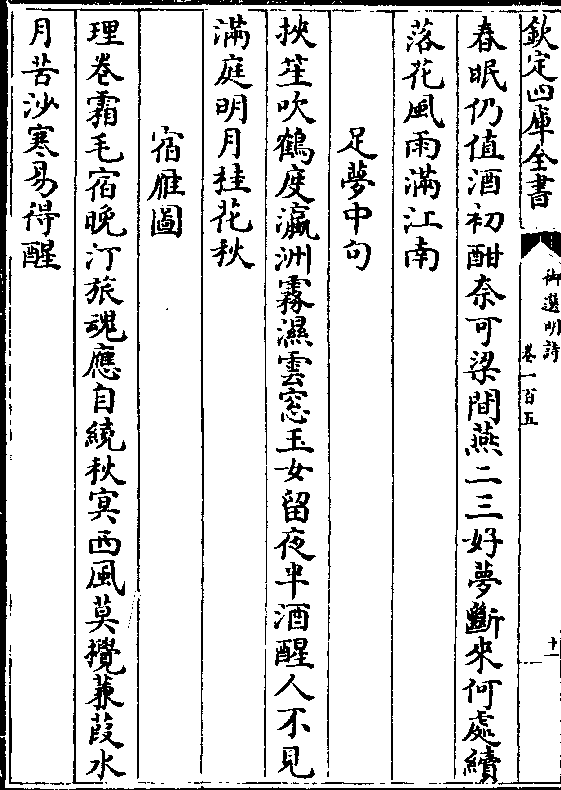 欽定四庫全書
御選明詩
卷一百五
十一
春眠仍值酒初酣奈可梁間燕二三好夢斷來何處續
落花風雨滿江南
足夢中句
挾笙吹鶴度瀛洲霧濕雲窓玉女留夜半酒醒人不見
滿庭明月桂花秋
宿雁圖
理巻霜毛宿晚汀旅魂應自繞秋冥西風莫攪蒹葭水
月苦沙寒易得醒